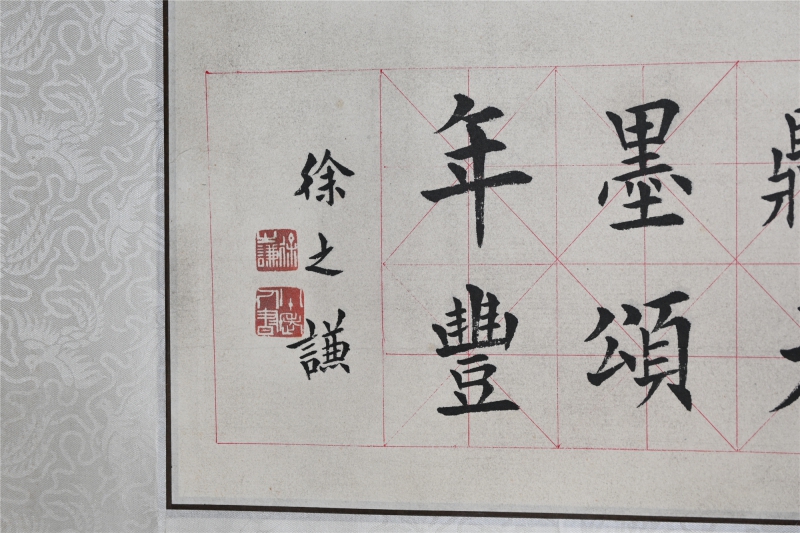 墨頌
年豐
徐之謙
徐之謙